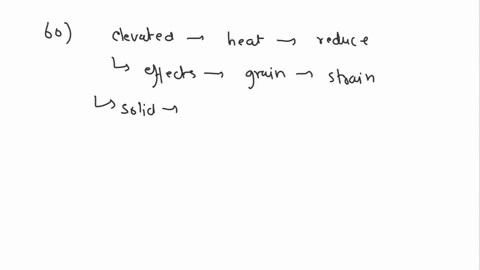 60) elevated → heat → reduce
↳ effects → grain → strain
↳ solid →